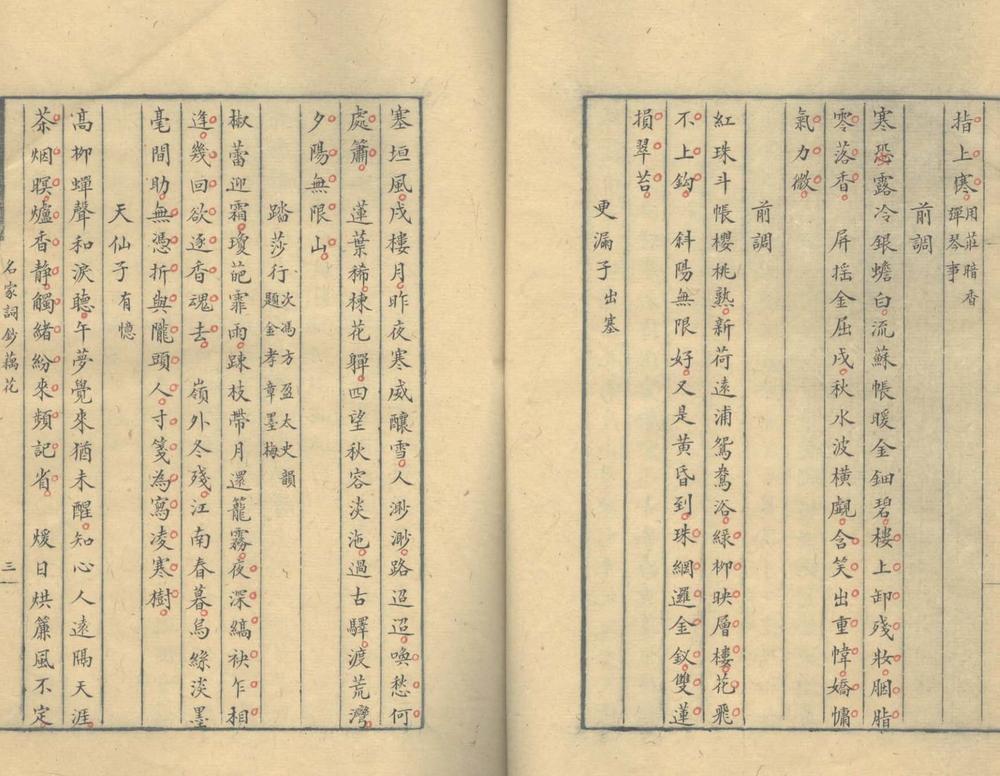 指上寒用莊暗香彈琴事
前調
寒恐露冷銀蟾白流蘇帳暖金鈿碧樓上卸殘妝胭脂
零落香　屏搖金屈戌秋水波橫覷含笑出重幃嬌慵
氣力微
前調
紅珠斗帳櫻桃熟新荷遠浦鴛鴦浴綠柳映層樓花飛
不上鈎　斜陽無限好又是黃昏到珠網邏金釵雙蓮
損翠苔
更漏子出塞
塞垣風戍樓月昨夜寒威釀雪人渺渺路迢迢喚愁何
處簫　蓮葉稀棟花嚲四望秋容淡沲過古驛渡荒灣
夕陽無限山
踏莎行次馮方盈太史韻題金孝章墨梅
椒蕾迎霜瓊葩霏雨踈枝帶月還籠霧夜深縞袂乍相
逢幾回欲逐香魂去　嶺外冬殘江南春暮烏絲淡墨
毫間助無憑折與隴頭人寸箋為寫凌寒樹
天仙子有憶
高柳蟬聲和淚聽午夢覺來猶未醒知心人遠隔天涯
茶烟暝爐香静觸緒紛來頻記省　煖日烘簾風不定
名家詞鈔藕花
三